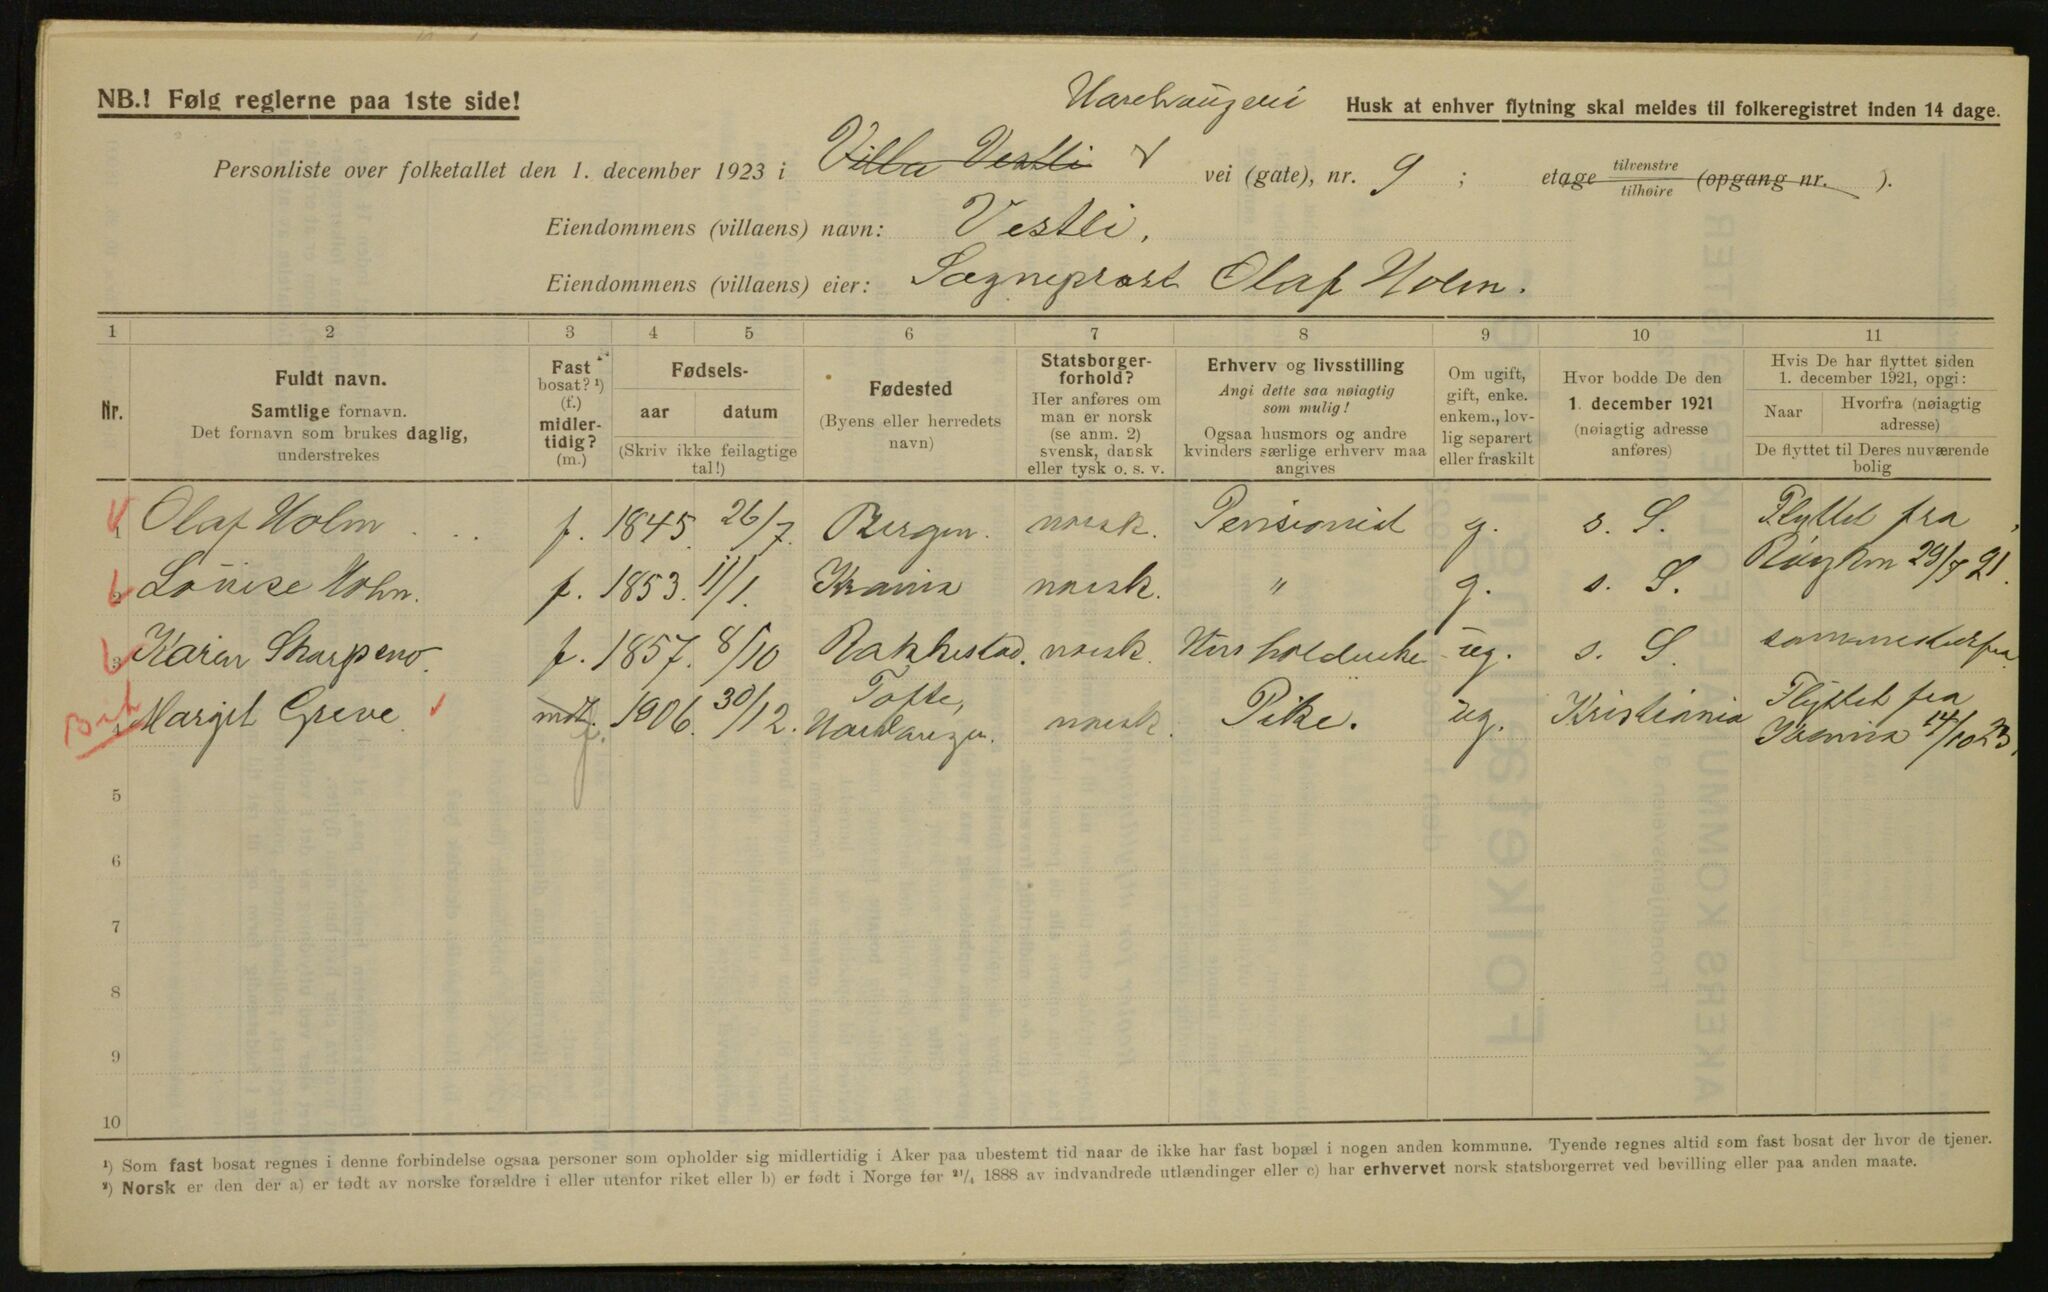 NB.! Følg reglerne paa 1ste side!
Husk at enhver flytning skal meldes til folkeregistret inden 14 dage.
Personliste over folketallet den 1. december 1923 i Villa Vestli vei (gate), nr. 9 ; etage tilvenstre tilhøire (opgang nr. ).
Eiendommens (villaens) navn: Vestli.
Eiendommens (villaens) eier: Sogneprest Olaf Holm.
1 2 3 4 5 6 7 8 9 10 11
Nr.
Fuldt navn.
Samtlige fornavn.
Det fornavn som brukes daglig,
understrekes
Fast
bosat? ¹)
(f.)
midler-
tidig?
(m.)
Fødsels-
aar datum
(Skriv ikke feilagtige
tal!)
Fødested
(Byens eller herredets
navn)
Statsborger-
forhold?
Her anføres om
man er norsk
(se anm. 2)
svensk, dansk
eller tysk o. s. v.
Erhverv og livsstilling
Angi dette saa nøiagtig
som mulig!
Ogsaa husmors og andre
kvinders særlige erhverv maa
angives
Om ugift,
gift, enke.
enkem., lov-
lig separert
eller fraskilt
Hvor bodde De den
1. december 1921
(nøiagtig adresse
anføres)
Hvis De har flyttet siden
1. december 1921, opgi:
Naar Hvorfra (nøiagtig
adresse)
De flyttet til Deres nuværende
bolig
1 Olaf Holm f. 1845. 26/7. Bergen. norsk. Pensionist g. s. S. Flyttet fra
Røyken 29/7 21.
2 Louise Holm. f. 1853. 11/1. Krania norsk. " g. s. S.
3 Karen Skarpeno. f. 1857. 8/10 Rakkestad. norsk. Husholderske ug. s. S. sammestedsfra
4 Margit Greve mdt. f. 1906. 30/12. Tofte, Hardanger. norsk. Pike. ug. Kristiania Flyttet fra
Krania 14/10 23.
5
6
7
8
9
10
¹) Som fast bosat regnes i denne forbindelse ogsaa personer som opholder sig midlertidig i Aker paa ubestemt tid naar de ikke har fast bopæl i nogen anden kommune. Tyende regnes altid som fast bosat der hvor de tjener.
²) Norsk er den der a) er født av norske forældre i eller utenfor riket eller b) er født i Norge før ²¹/₄ 1888 av indvandrede utlændinger eller c) har erhvervet norsk statsborgerret ved bevilling eller paa anden maate.